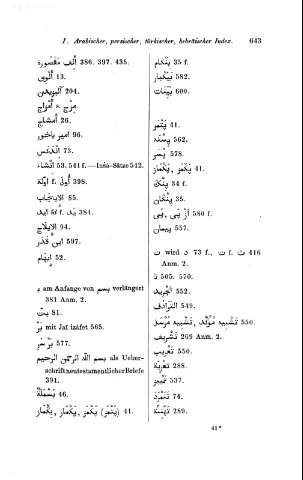 I. Arabischer, persischer, türkischer, hebräischer Index. 643
ألف مقصورة 386. 397. 435.
ألوس 13.
آليزيدن 204.
مزج = أمزاج
أمشاج 26.
امير ياخور 96.
اندس 73.
انشاء 53. 541 f. — Inšā-Sätze 542.
أولة f. أول 398.
الايجاب 85.
ايد für يد 381.
الايلاج 94.
ابن قدر 597.
ايهام 52.
ب am Anfange von بسم verlängert
381 Anm. 2.
بت 81.
بر mit Jat izâfet 565.
بر سر 577.
بسم الله الرحمن الرحيم als Ueber-
schrift neutestamentlicher Briefe
391.
بسملة 46.
بكمار, بكمز, بكماز (بتمز) 41.
پنگام 35 f.
پيكار 582.
پيات 600.
پتمز 41.
پسند 562.
پسر 578.
پكمز, پكمار 41.
پنگ 34 f.
پنگان 35.
پى, از پى 580 f.
پيمان 557.
ت wird د 73 f., ت f. ث 416
Anm. 2.
تا 505. 570.
تجريد 552.
الترادف 549.
تشبيه مؤكد, تشبيه مرسل 550.
تشريف 269 Anm. 2.
تعريب 550.
تعرية 288.
تمييز 537.
تمرد 74.
تهنئة 289.
41*